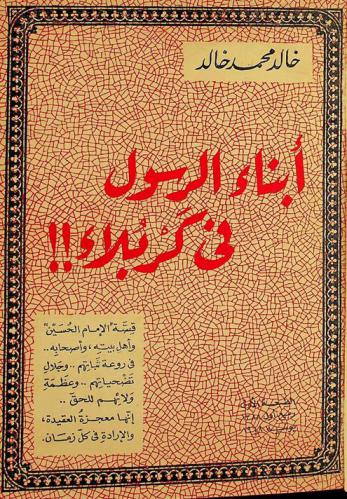 خالد محمد خالد
أبناء الرسول
في كَربَلاء!!
قِصَّة "الإمام الحُسَين"
وأهل بيتِه، وأصحابِه..
في روعة ثباتِهم.. وجَلالِ
تضحياتِهم.. وعظمَةِ
وَلائِهم للحقّ..
إنّها معجزة العقيدة،
والإرادة في كلّ زمَان.